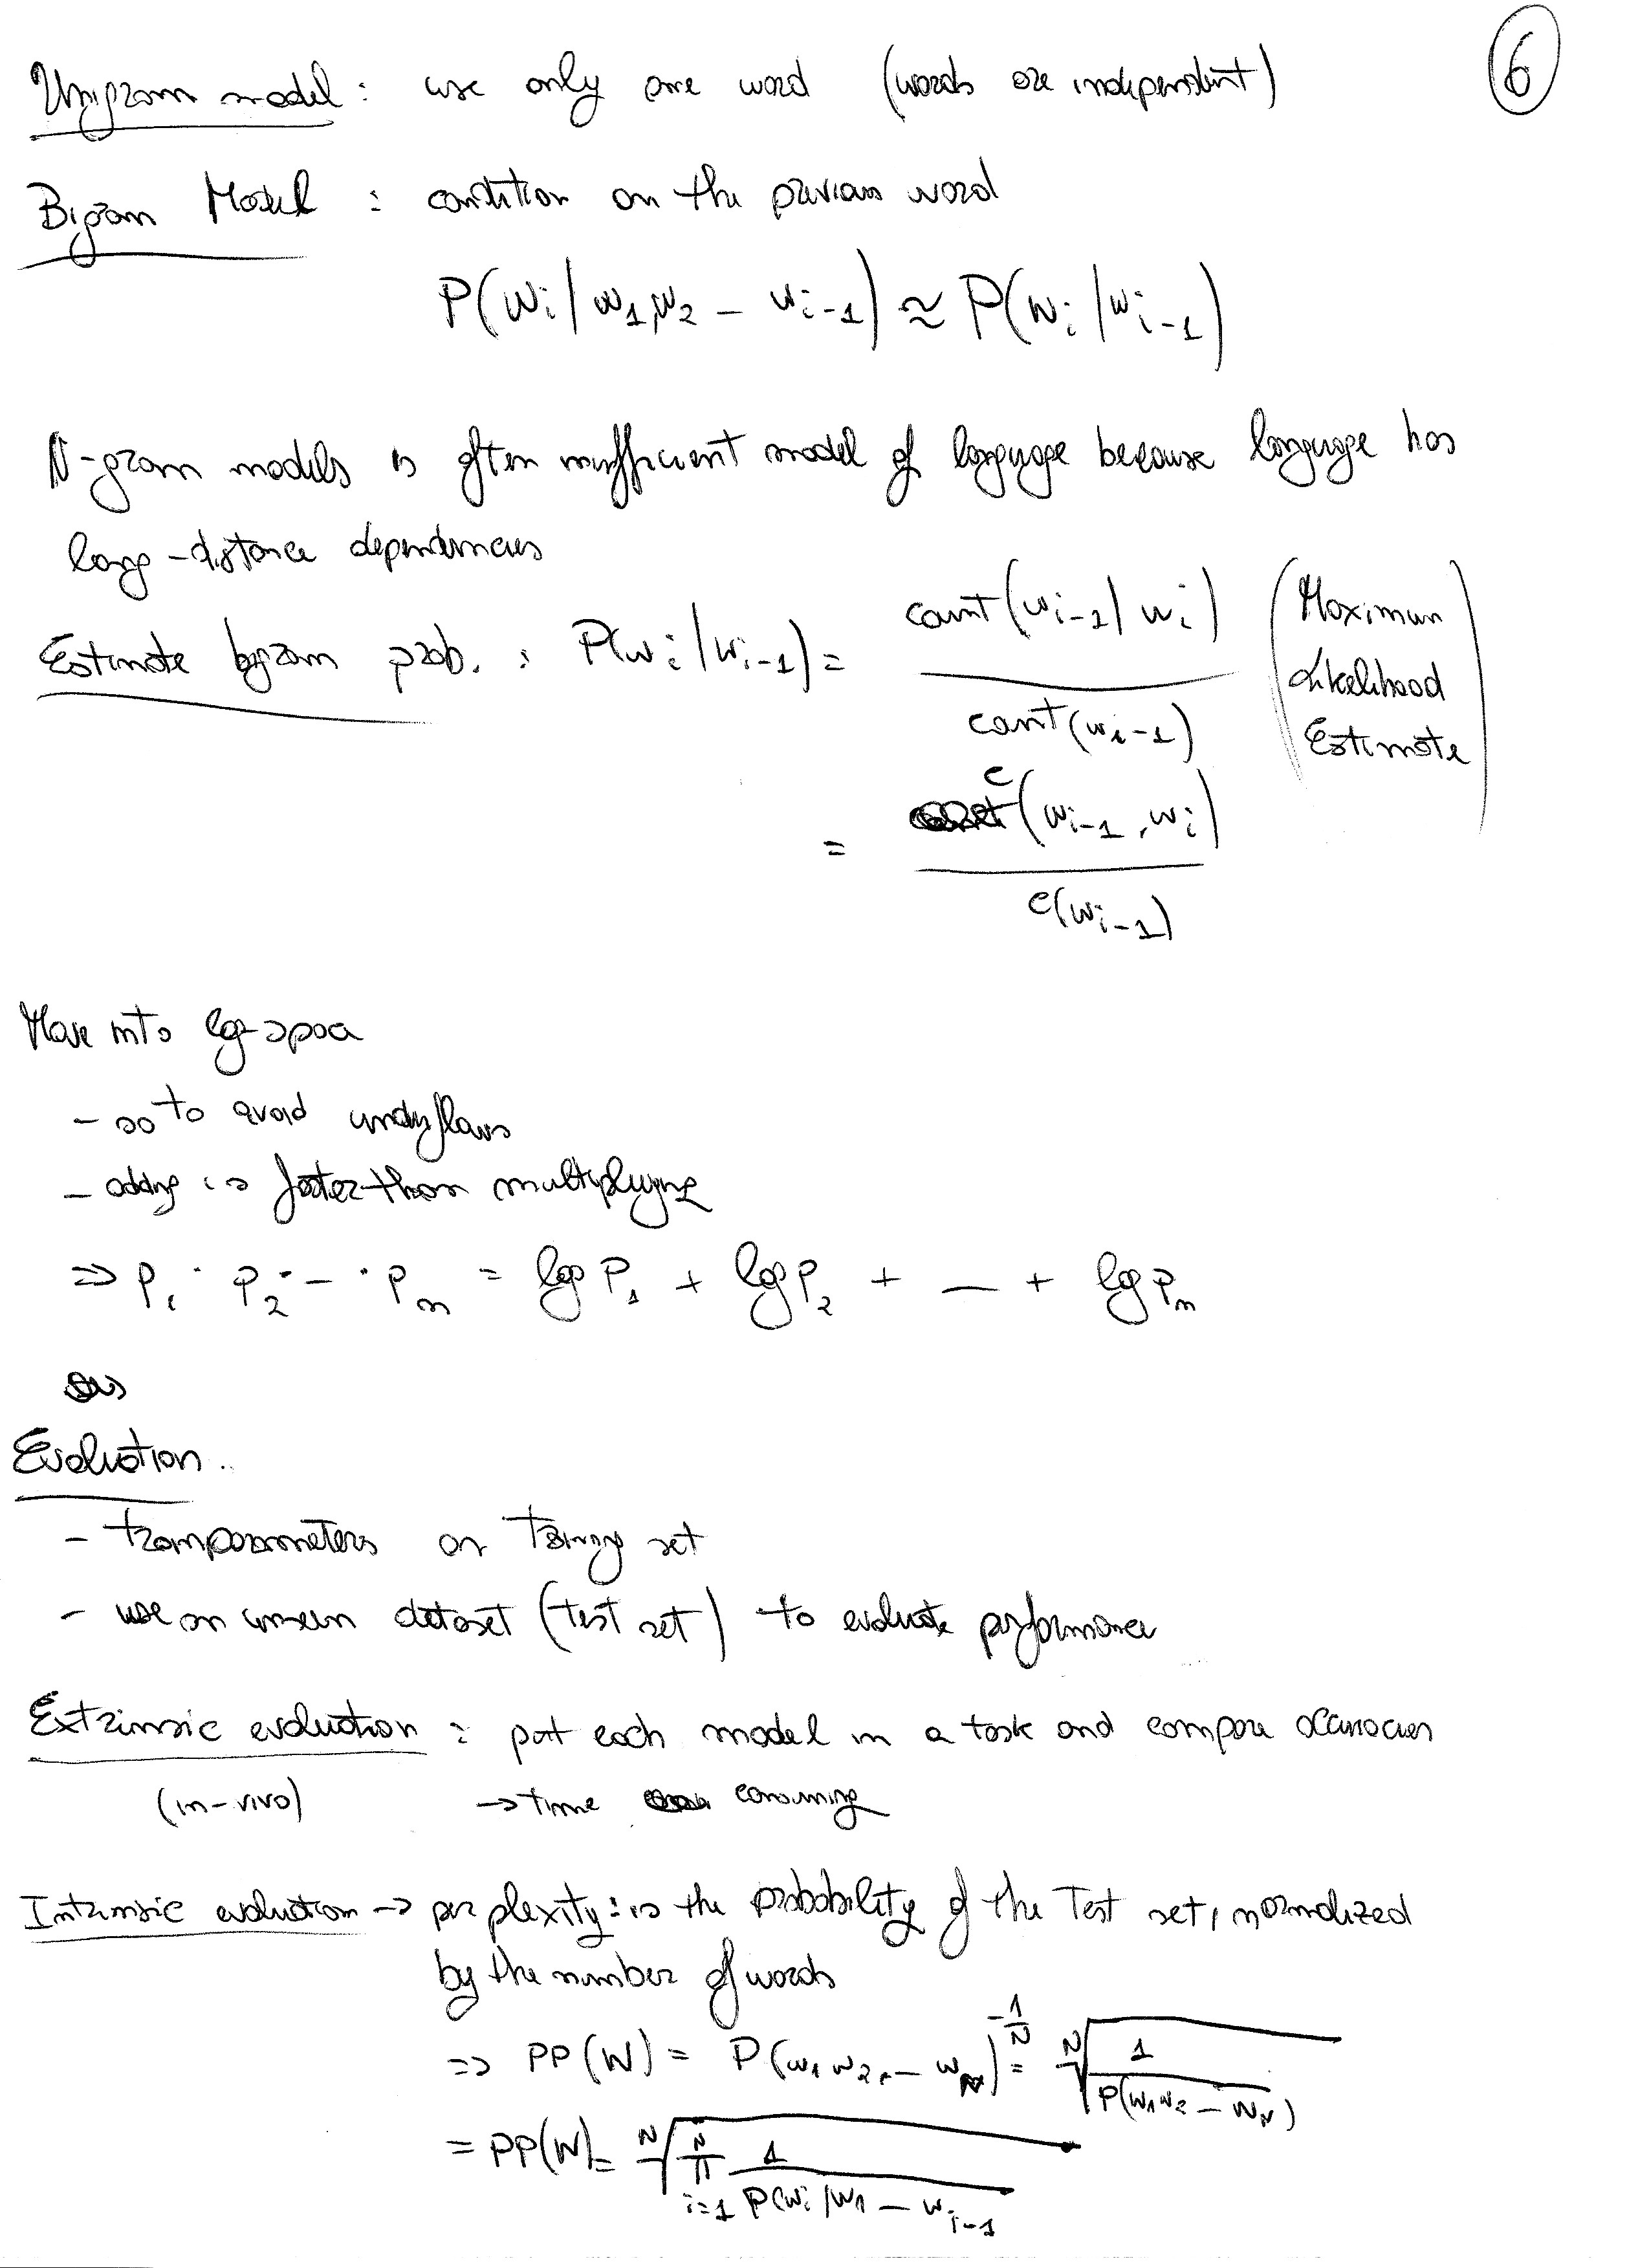 6
Unigram model : use only one word (words are independent)
Bigram Model : condition on the previous word
P(wi | w1,w2 – wi-1) ≈ P(wi | wi-1)
N-gram models is often insufficient model of language because language has
long-distance dependencies
Estimate bigram prob. : P(wi | wi-1) = count(wi-1 | wi) / count(wi-1) (Maximum Likelihood Estimate)
= c(wi-1, wi) / c(wi-1)
Move into log-space
- so to avoid underflows
- adding is faster than multiplying
⇒ p1 · p2 · – · pn = log p1 + log p2 + — + log pn
Evaluation.
- train parameters on training set
- use an unseen dataset (test set) to evaluate performance
Extrinsic evaluation : put each model in a task and compare accuracies
(in-vivo) → time consuming
Intrinsic evaluation → perplexity: is the probability of the Test set, normalized
by the number of words
⇒ PP(W) = P(w1 w2, – wN)^-1/N = N√(1 / P(w1 w2 – wN))
= PP(W) = N√(N Π i=1 1 / P(wi | w1 – wi-1